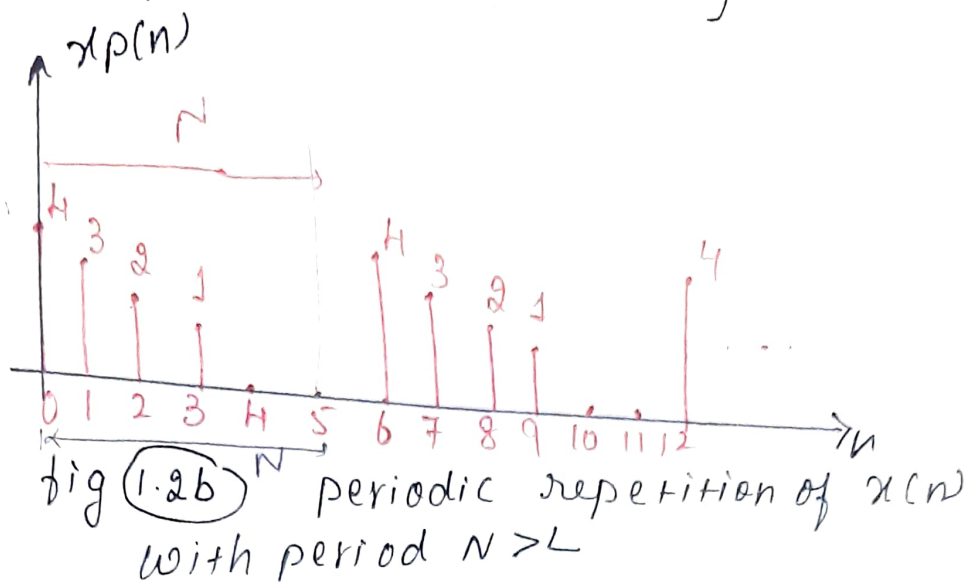 xp(n)
N
4 3 2 1 4 3 2 1 4 . . .
0 1 2 3 4 5 6 7 8 9 10 11 12 n
N
fig 1.2b periodic repetition of x(n)
with period N >L